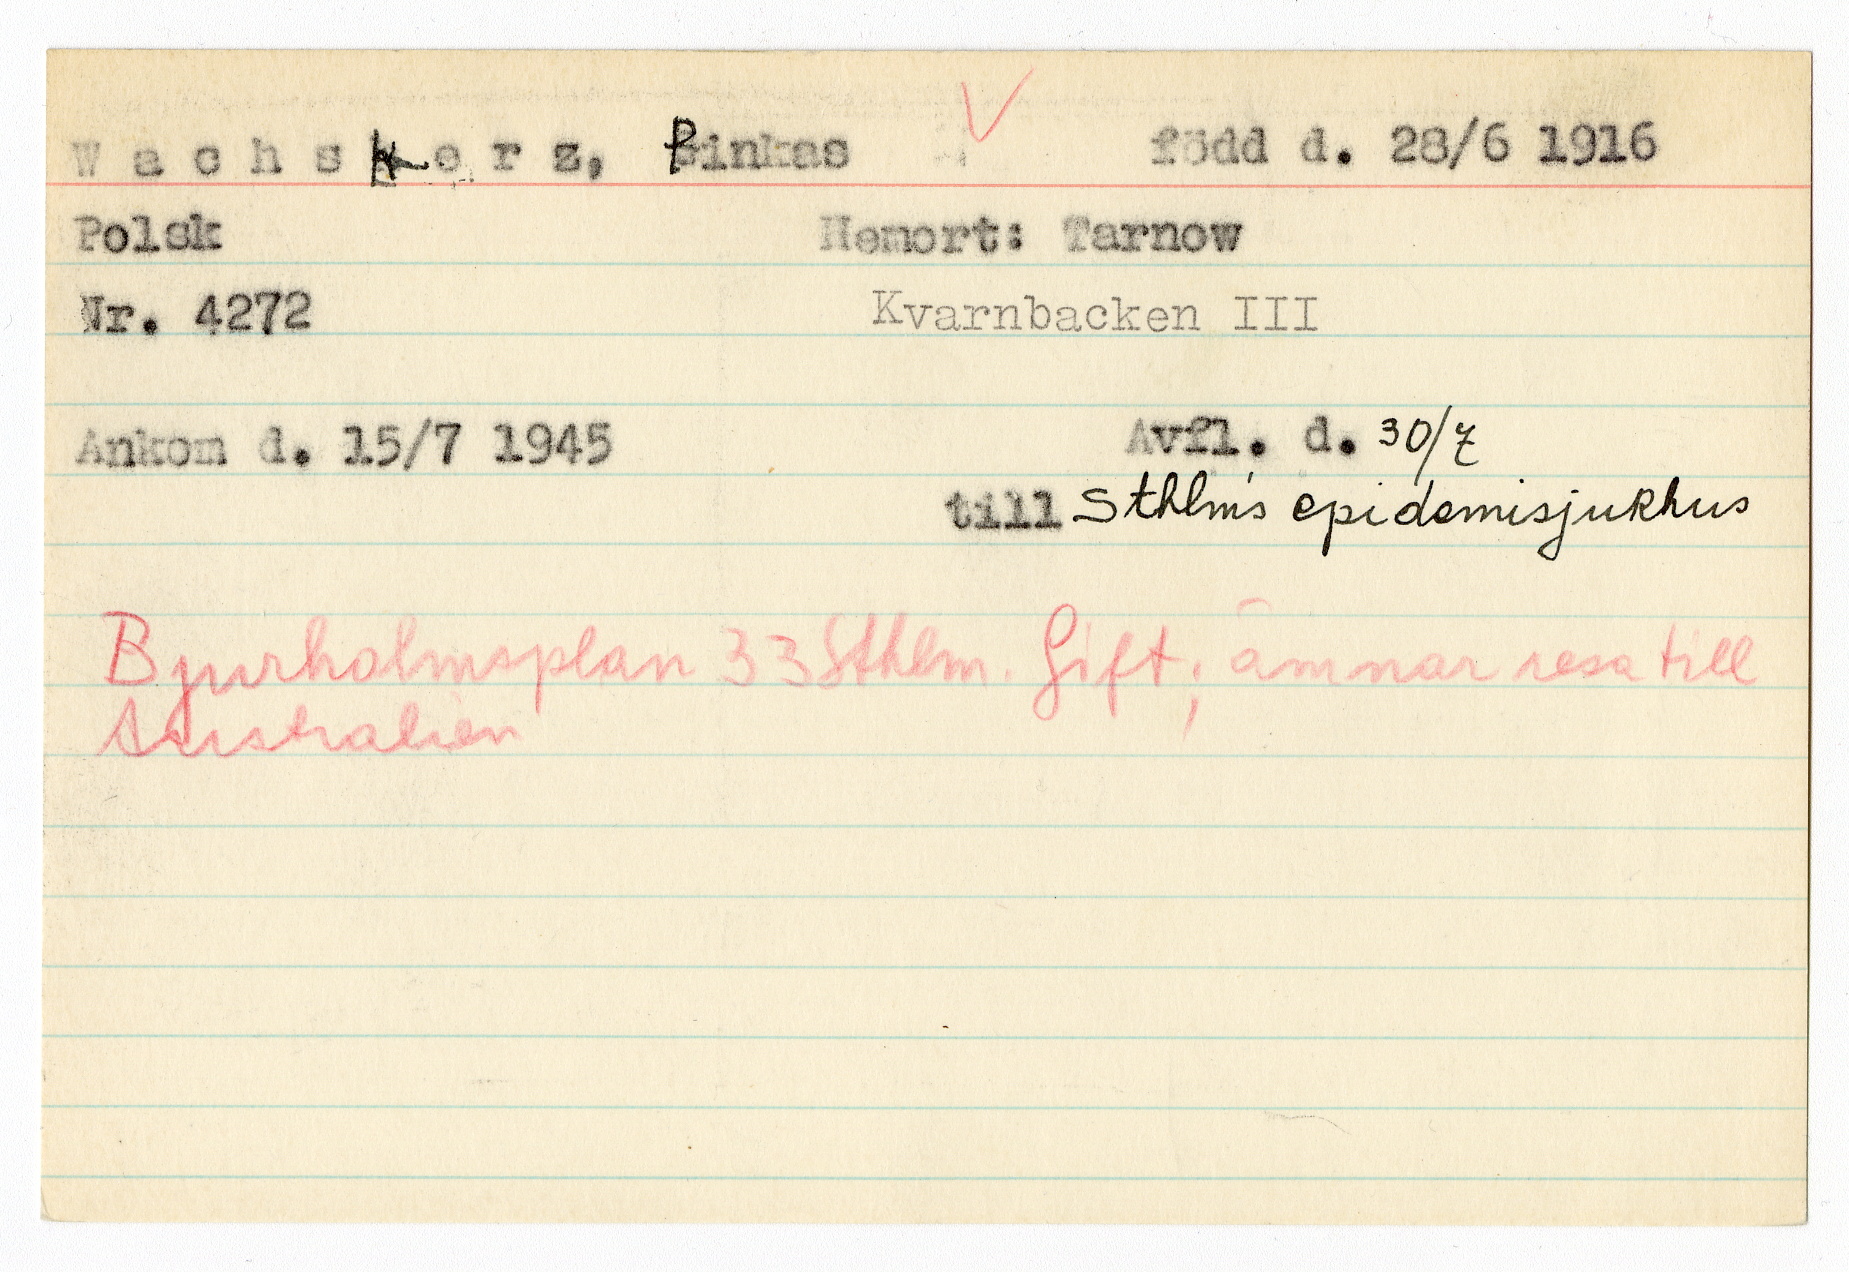 Wachskerz, Pinkas född d. 28/6 1916
Polsk Hemort: Tarnow
Nr. 4272 Kvarnbacken III
Ankom d. 15/7 1945 Avfl. d. 30/7
till Sthlms epidemisjukhus
Bjurholmsplan 33 Sthlm. Gift, ämnar resa till
Australien